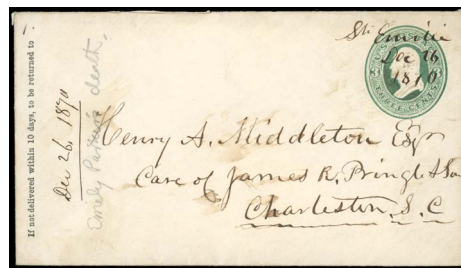 1.
If not delivered within 10 days, to be returned to
Dec 26, 1870
Emely Parker's death.
St. Emilie
Dec 16
1870
U.S. POSTAGE
THREE CENTS
Henry A. Middleton Esqr
Care of James R. Pringle & Son
Charleston, S.C